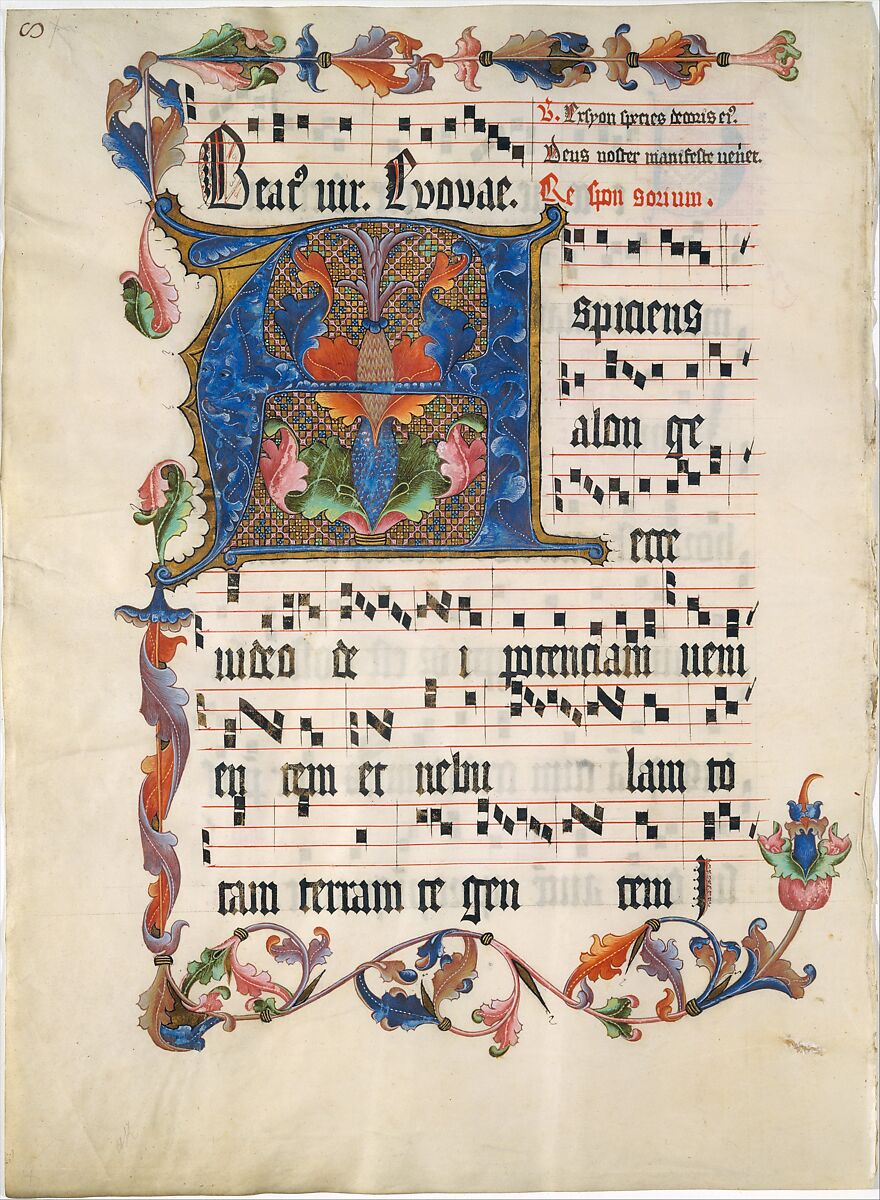 Beatꝰ uir. Euouae.
V. Ex syon species decoris eiꝰ.
Deus noster manifeste ueniet.
Re spon sorium.
A spiciens
alon ge
ecce
uideo de i potenciam ueni
en tem et nebu lam to
tam terram te gen tem J